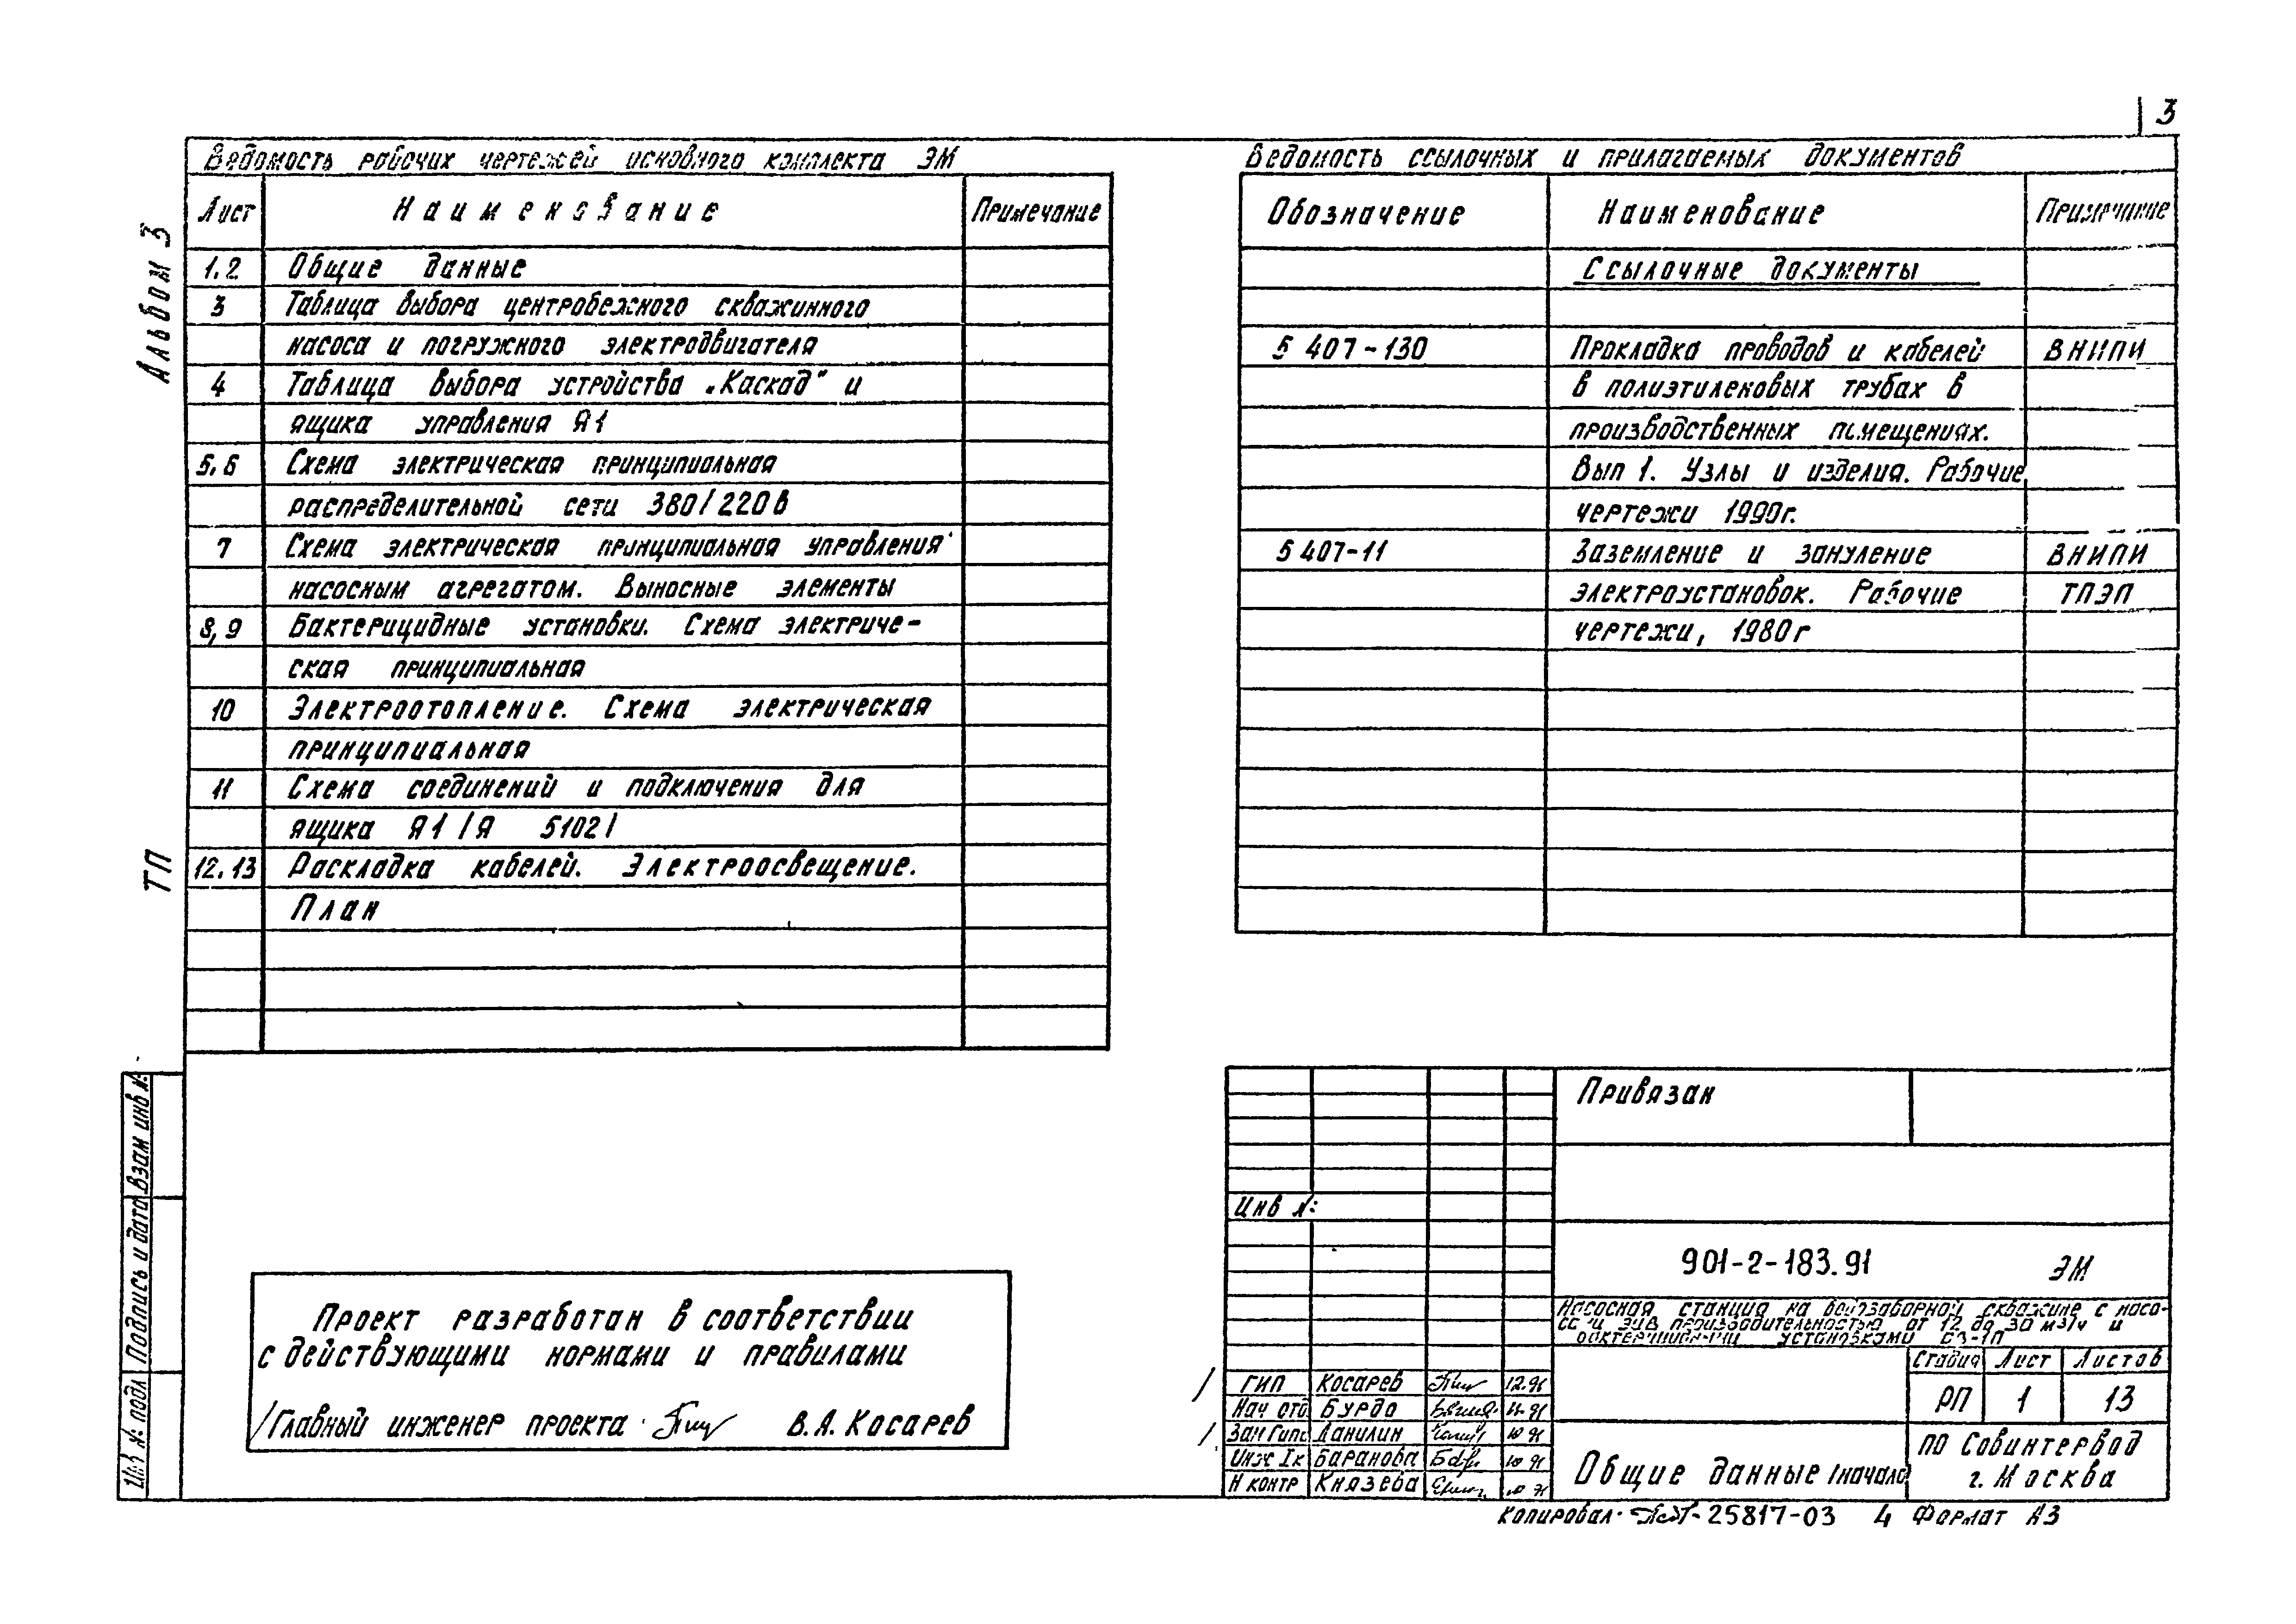 3
Альбом 3
ТП
Ведомость рабочих чертежей основного комплекта ЭМ
Лист Наименование Примечание
1.2 Общие данные
3 Таблица выбора центробежного скважинного
насоса и погружного электродвигателя
4 Таблица выбора устройства „Каскад" и
ящика управления Я1
5.6 Схема электрическая принципиальная
распределительной сети 380/220в
7 Схема электрическая принципиальная управления
насосным агрегатом. Выносные элементы
8,9 Бактерицидные установки. Схема электриче-
ская принципиальная
10 Электроотопление. Схема электрическая
принципиальная
11 Схема соединений и подключения для
ящика Я1 /Я 5102/
12.13 Раскладка кабелей. Электроосвещение.
План
Ведомость ссылочных и прилагаемых документов
Обозначение Наименование Примечание
Ссылочные документы
5 407-130 Прокладка проводов и кабелей ВНИПИ
в полиэтиленовых трубах в
производственных помещениях.
Вып 1. Узлы и изделия. Рабочие
чертежи 1990г.
5 407-11 Заземление и зануление ВНИПИ
электроустановок. Рабочие ТПЭП
чертежи, 1980г
Взам инв №
Подпись и дата
Инв № подл
Проект разработан в соответствии
с действующими нормами и правилами
/Главный инженер проекта В.А. Косарев
Привязан
Инв №:
901-2-183.91 ЭМ
Насосная станция на водозаборной скважине с насо-
производительностью от 12 до 30 м3/ч и
установками
Стадия Лист Листов
РП 1 13
ГИП Косарев 12.91
Нач отд Бурдо 11.91
Зам Гипа Данилин 10 91
Инж Iк Баранова 10 91
Н контр Князева
Общие данные /начало
ПО Совинтервод
г. Москва
Копировал 25817-03 4 Формат А3